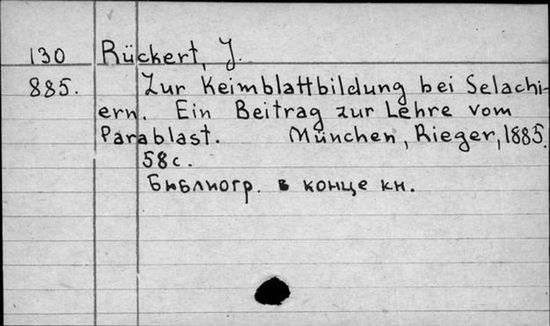 130 Rückert, J.
885. Zur Keimblattbildung bei Selachi-
ern. Ein Beitrag zur Lehre vom
Parablast. München, Rieger, 1885.
58 с.
Библиогр. в конце кн.